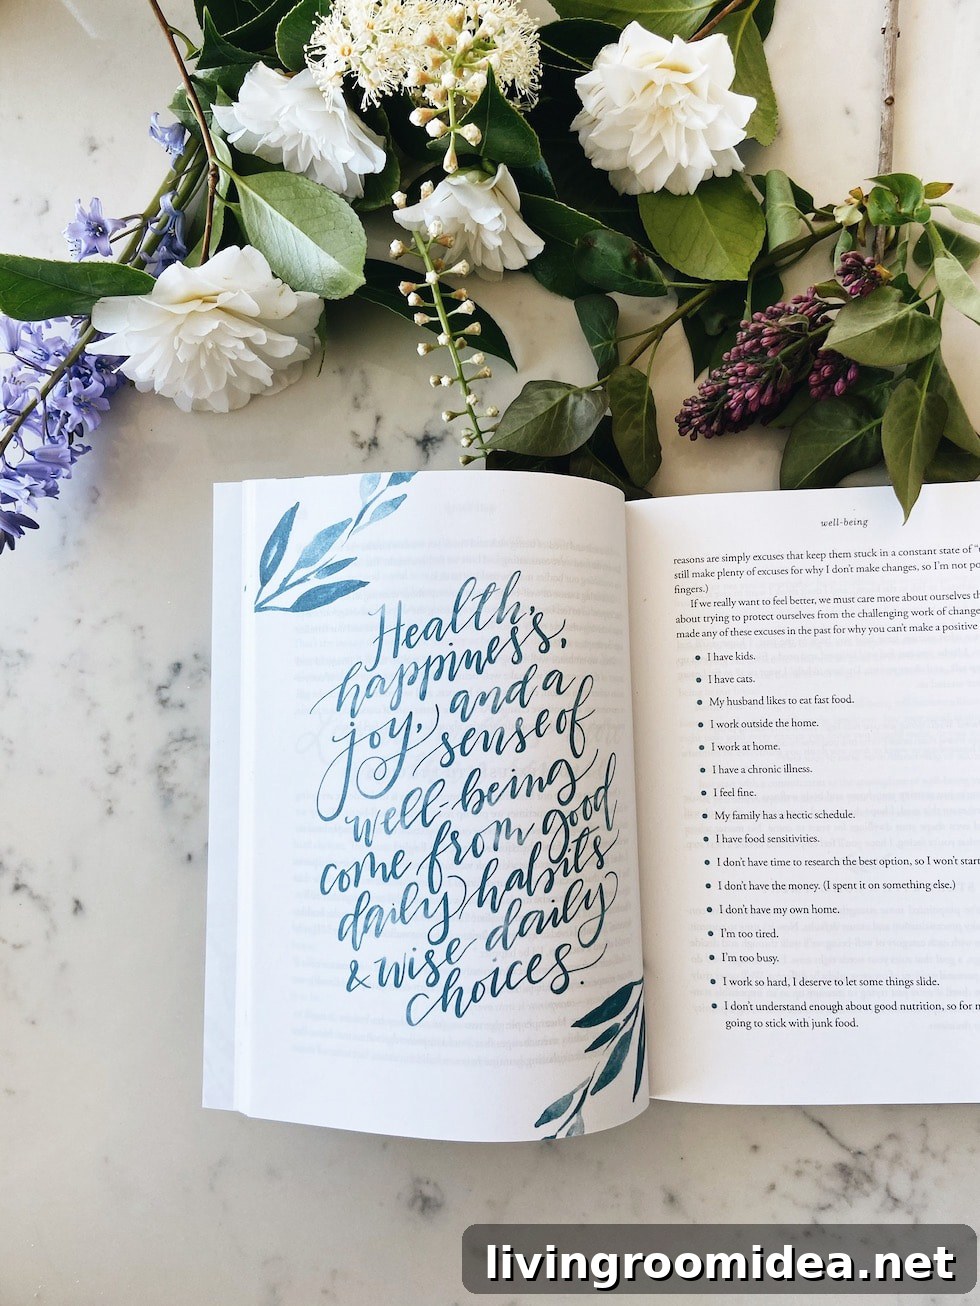 Health,
happiness,
joy, and a
sense of
well-being
come from good
daily habits
& wise daily
choices.
well-being
reasons are simply excuses that keep them stuck in a constant state of “
still make plenty of excuses for why I don’t make changes, so I’m not po
fingers.)
If we really want to feel better, we must care more about ourselves th
about trying to protect ourselves from the challenging work of change
made any of these excuses in the past for why you can’t make a positive
• I have kids.
• I have cats.
• My husband likes to eat fast food.
• I work outside the home.
• I work at home.
• I have a chronic illness.
• I feel fine.
• My family has a hectic schedule.
• I have food sensitivities.
• I don’t have time to research the best option, so I won’t start
• I don’t have the money. (I spent it on something else.)
• I don’t have my own home.
• I’m too tired.
• I’m too busy.
• I work so hard, I deserve to let some things slide.
• I don’t understand enough about good nutrition, so for n
going to stick with junk food.
livingroomidea.net